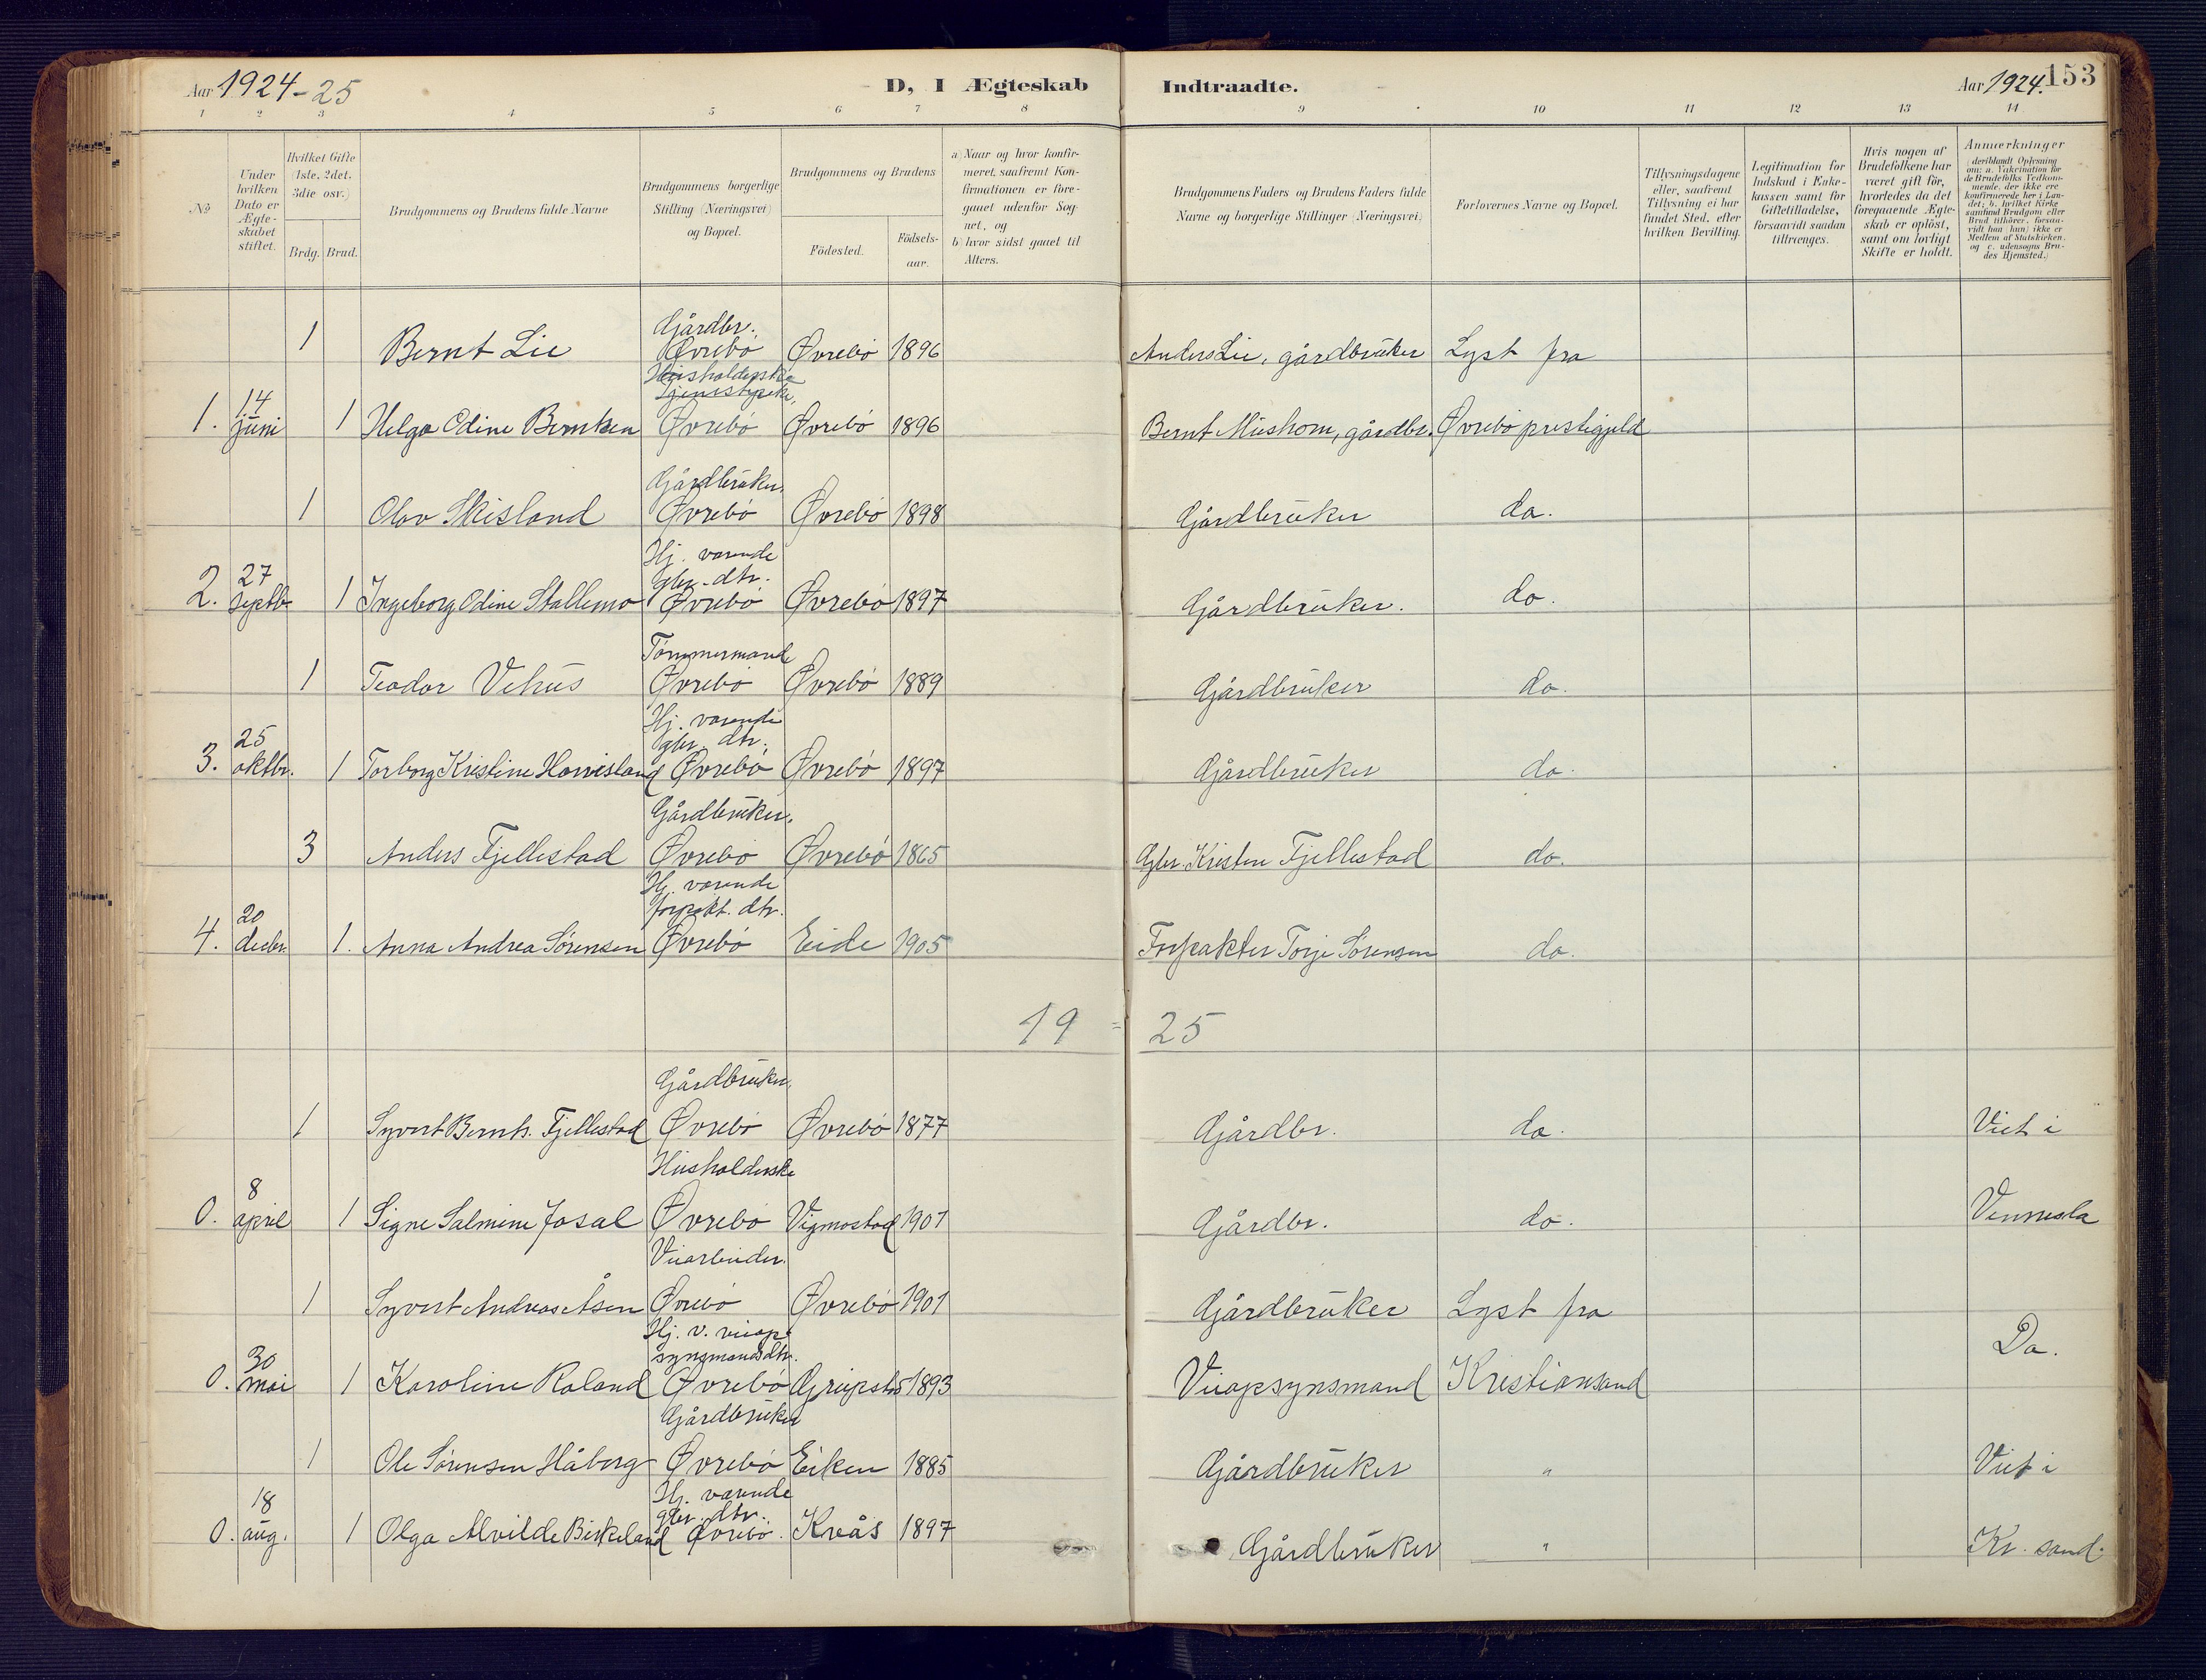 Aar 1924-25
D, I Ægteskab Indtraadte.
Aar 1924. 153
1 2 3 4 5 6 7 8 9 10 11 12 13 14
No
Under hvilken Dato er Ægteskabet stiftet.
Hvilket Gifte (1ste, 2det, 3die osv.)
Brdg. Brud.
Brudgommens og Brudens fulde Navne
Brudgommens borgerlige Stilling (Næringsvei) og Bopæl.
Brudgommens og Brudens
Födested.
Födselsaar.
a) Naar og hvor konfirmeret, saafremt Konfirmationen er foregaaet udenfor Sognet, og
b) hvor sidst gaaet til Alters.
Brudgommens Faders og Brudens Faders fulde Navne og borgerlige Stillinger (Næringsvei)
Forlovernes Navne og Bopæl.
Tillysningsdagene eller, saafremt Tillysning ei har fundet Sted, efter hvilken Bevilling.
Legitimation for Indskud i Enkekassen samt for Giftetilladelse, forsaavidt saadan tiltrænges.
Hvis nogen af Brudefolkene har været gift för, hvorledes da det foregaaende Ægteskab er oplöst, samt om lovligt Skifte er holdt.
Anmærkninger (deriblandt Oplysning om: a. Vakcination for de Brudefolks Vedkommende, der ikke ere konfirmerede her i Landet; b. hvilket Kirkesamfund Brudgom eller Brud tilhörer, forsaavidt han (hun) ikke er Medlem af Statskirken, og c. udensogns Brudes Hjemsted.)
Gårdbr.
1 Bernt Lie Øvrebö Øvrebö 1896 Anders Lie, gårdbruker Lyst fra
Husholderske
1. 14 juni 1 Helga Odine Berntsen Øvrebö Øvrebö 1896 Bernt Mushom, gårdbr. Øvrebö prestegjeld
Gårdbruker.
1 Olav Skisland Øvrebö Øvrebö 1898 Gårdbruker do.
Hj. værende
gbr. dtr.
2. 27 septbr. 1 Ingeborg Odine Stallemo Øvrebö Øvrebö 1897 Gårdbruker. do.
Tømmermand
1 Teodor Vehus Øvrebö Øvrebö 1889 Gårdbruker do.
Hj. værende
gbr. dtr.
3. 25 oktbr. 1 Torborg Kristine Horrisland Øvrebö Øvrebö 1897 Gårdbruker do.
Gårdbruker.
3 Anders Fjellestad Øvrebö Øvrebö 1865 Gbr. Kristen Fjellestad do.
Hj. værende
forpakt. dtr.
4. 20 decbr. 1. Anna Andrea Sörensen Øvrebö Eide 1905 Forpakter Torje Sörensen do.
19 = 25
Gårdbruker.
1 Syvert Bernh. Fjellestad Øvrebö Øvrebö 1877 Gårdbr. do. Viet i
Husholderske
0. 8 april 1 Signe Salmine Josal Øvrebö Vigmostad 1901 Gårdbr. do. Vennesla
Veiarbeider.
1 Syvert Andreas Åsen Øvrebö Øvrebö 1901 Gårdbruker Lyst fra
Hj. v. veiop-
synsmandsdtr.
0. 30 mai 1 Karoline Roland Øvrebö 1893 Veiopsynsmand Kristiansand Do.
Gårdbruker
1 Ole Sörensen Håberg Øvrebö Eiken 1885 Gårdbruker " Viet i
Hj. værende
gbr. dtr.
0. 18 aug. 1 Olga Alvilde Birkeland Øvrebö. Kvås 1897 Gårdbruker " Kr. sand.